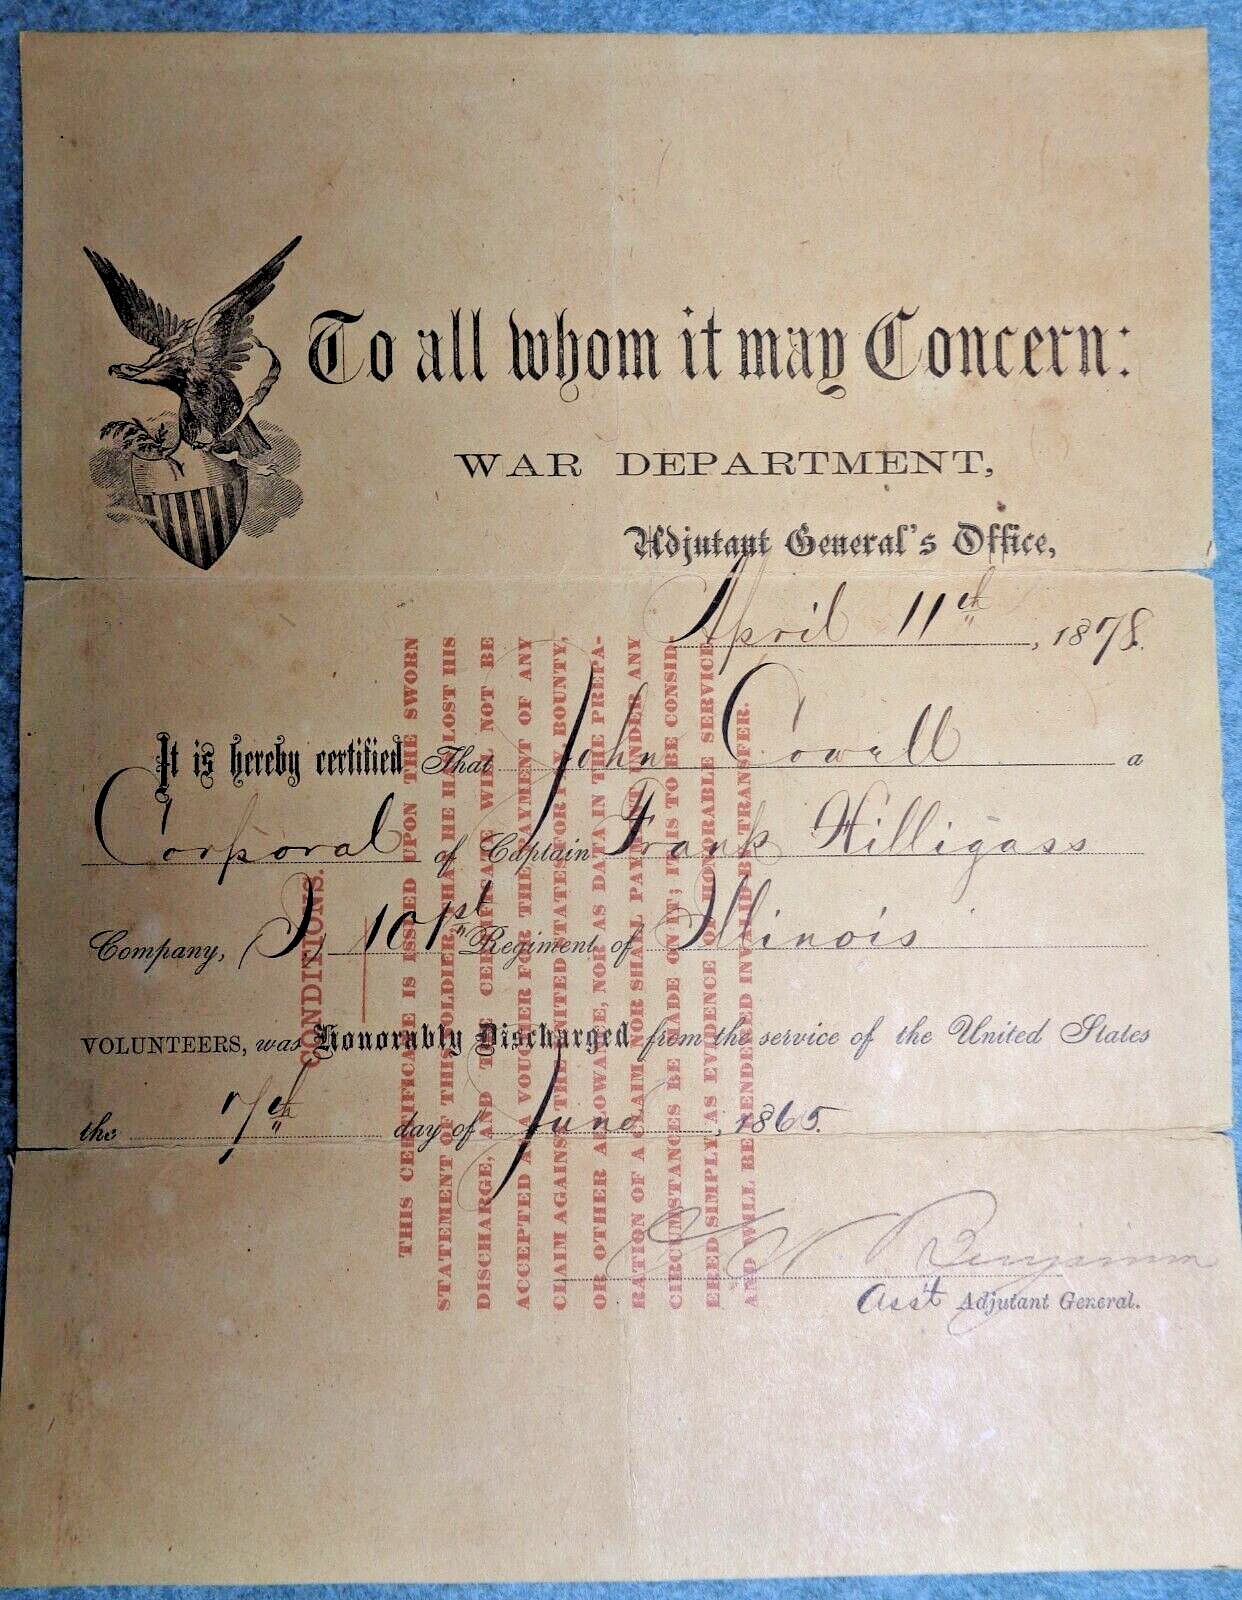 To all whom it may Concern:
WAR DEPARTMENT,
Adjutant General's Office,
April 11th, 1878.
It is hereby certified That John Cowell a
Corporal of Captain Frank Hilligass
Company, I, 101st Regiment of Illinois
VOLUNTEERS, was Honorably Discharged from the service of the United States
the 7th day of June, 1865.
Benjamin
Ass't Adjutant General.
CONDITIONS.
THIS CERTIFICATE IS ISSUED UPON THE SWORN
STATEMENT OF THIS SOLDIER, THAT HE HAS LOST HIS
DISCHARGE, AND THE CERTIFICATE WILL NOT BE
ACCEPTED AS A VOUCHER FOR THE PAYMENT OF ANY
CLAIM AGAINST THE UNITED STATES FOR PAY, BOUNTY,
OR OTHER ALLOWANCE, NOR AS DATA IN THE PREPA-
RATION OF A CLAIM, NOR SHALL PAYMENT UNDER ANY
CIRCUMSTANCES BE MADE ON IT; IT IS TO BE CONSID-
ERED SIMPLY AS EVIDENCE OF HONORABLE SERVICE
AND WILL BE RENDERED INVALID BY TRANSFER.